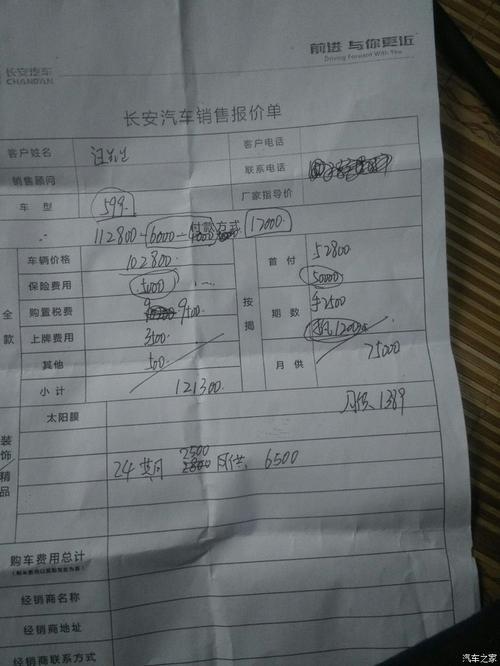 长安汽车
CHANGAN
前进 与你更近
Driving Forward With You
长安汽车销售报价单
客户姓名 汪先生 客户电话
销售顾问 联系电话
车 型 599 厂家指导价
112800-6000-4000 付款方式 17000
全款 按揭
车辆价格 102800 首 付 52800
保险费用 5000 50000
购置税费 9500 期 数 手2500
上牌费用 3500 12000
其他 500 月 供 75000
小 计 121300
装饰/精品
太阳膜 月供 1389
24期 2500 月供: 6500
购车费用总计
经销商名称
经销商地址
经销商联系方式
汽车之家